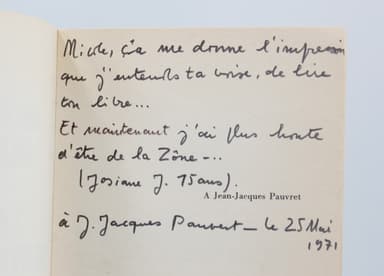 Nicole, ça me donne l'impression
que j'entends ta voise, de lire
ton livre...
Et maintenant j'ai plus honte
d'être de la Zône -..
(Josiane J. 15 ans).
A Jean-Jacques Pauvret
à J. Jacques Pauvert - le 25 Mai
1971